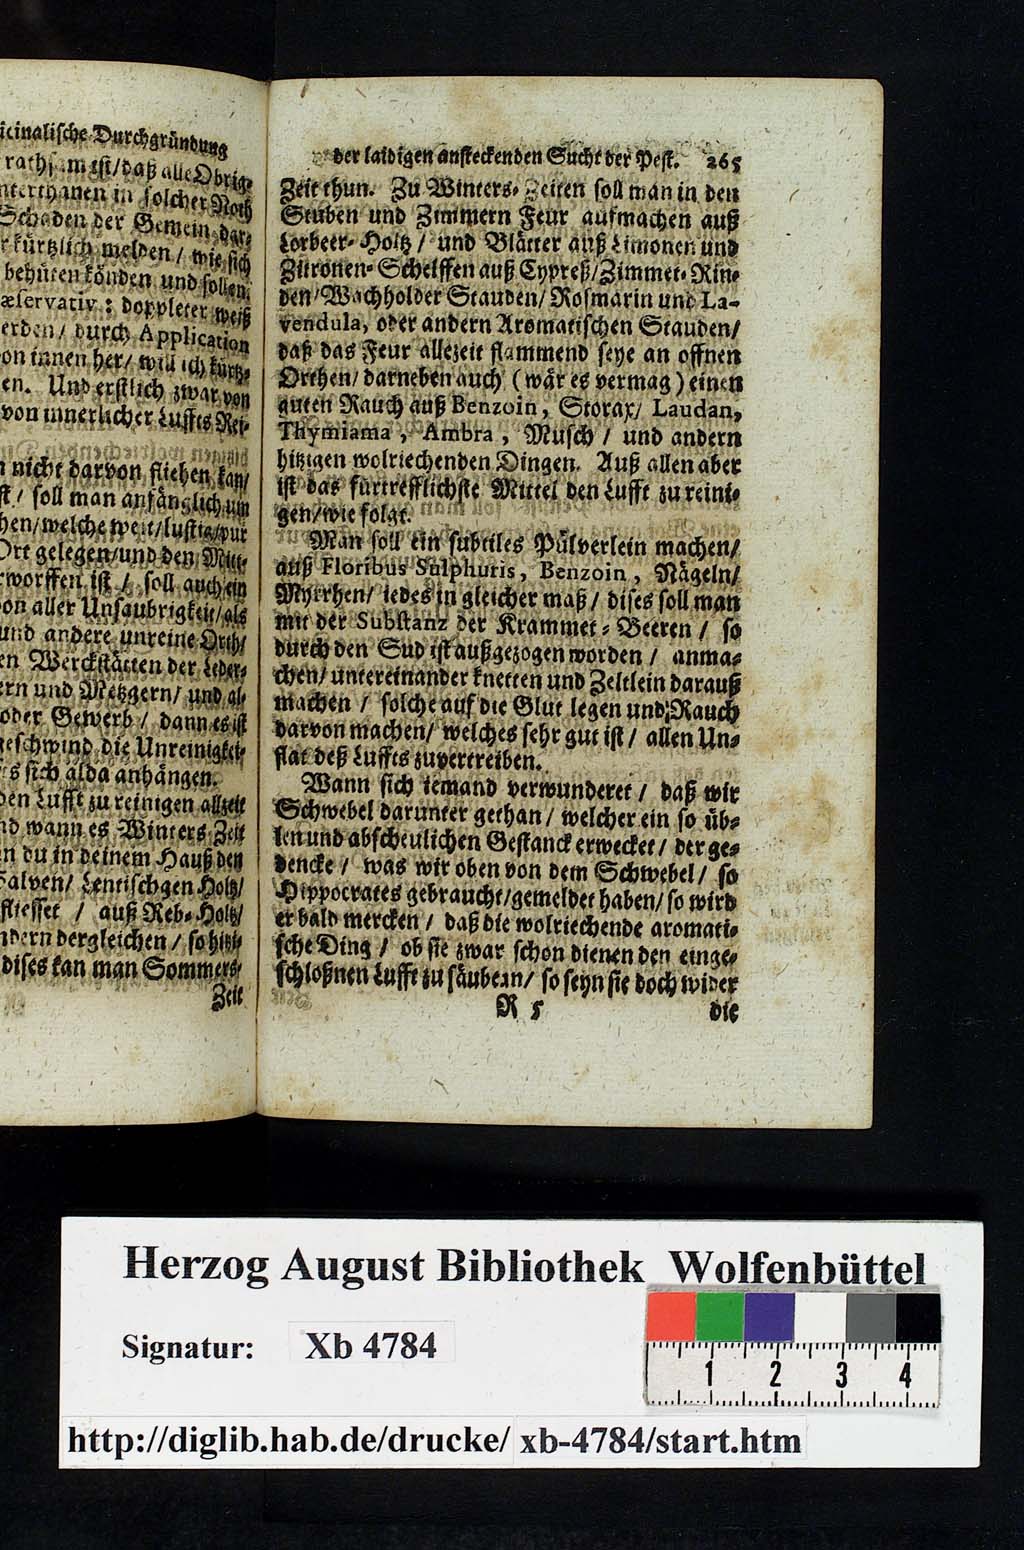 icinalische Durchgründung
rathsam ist/daß alle Obrig-
nterthanen in solcher Noth
Schaden der Gemein dar-
r kürtzlich melden / wie sich
behüten könden und sollen.
æservativ: doppleter weiß
erden / durch Application
on innen her / will ich kürtz-
en. Und erstlich zwar von
von innerlicher Luffts Rei-
n nicht darvon fliehen kan/
st / soll man anfänglich um
hen/welche weit/lustig/pur
Ort gelegen/und den Mitt-
rworffen ist / soll auch ein
on aller Unsaubrigkeit/als
und andere unreine Orth/
en Werckstätten der Leder-
ern und Metzgern/ und al-
oder Gewerb / dann es ist
geschwind die Unreinigkei-
s sich alda anhängen.
den Lufft zu reinigen allzeit
nd wann es Winters Zeit
n du in deinem Hauß den
Salven/ Lentischgen Holtz/
fliesset / auß Reb-Holtz/
ndern dergleichen / so hitzi-
dises kan man Sommers-
Zeit
der laidigen ansteckenden Sucht der Pest. 265
Zeit thun. Zu Winters- Zeiten soll man in den
Stuben und Zimmern Feur aufmachen auß
Lorbeer- Holtz / und Blätter auß Limonen und
Zitronen- Schelffen auß Cypreß/Zimmet- Rin-
den/Wachholder Stauden/ Rosmarin und La-
vendula, oder andern Aromatischen Stauden/
daß das Feur allezeit flammend seye an offnen
Orthen/ darneben auch (wär es vermag) einen
guten Rauch auß Benzoin, Storax/ Laudan,
Thymiama, Ambra, Musch / und andern
hitzigen wolriechenden Dingen. Auß allen aber
ist das fürtrefflichste Mittel den Lufft zu reini-
gen/wie folgt.
Man soll ein subtiles Pülverlein machen/
auß Floribus Sulphuris, Benzoin, Nägeln/
Myrrhen/ iedes in gleicher maß / dises soll man
mit der Substanz der Krammet- Beeren / so
durch den Sud ist außgezogen worden / anma-
chen/ untereinander knetten und Zeltlein darauß
machen / solche auf die Glut legen und Rauch
darvon machen/ welches sehr gut ist / allen Un-
flat deß Luffts zuvertreiben.
Wann sich iemand verwunderet / daß wir
Schwebel darunter gethan / welcher ein so üb-
len und abscheulichen Gestanck erwecket / der ge-
dencke / was wir oben von dem Schwebel / so
Hippocrates gebraucht/gemeldet haben/ so wird
er bald mercken / daß die wolriechende aromati-
sche Ding / ob sie zwar schon dienen den einge-
schloßnen Lufft zu säubern/ so seyn sie doch wider
R 5 die
Herzog August Bibliothek Wolfenbüttel
Signatur: Xb 4784
1 2 3 4
http://diglib.hab.de/drucke/ xb-4784/start.htm